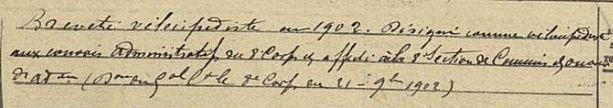 Breveté vélocipédiste en 1902. Désigné comme vélocipédiste
aux convois administratifs du 8e Corps et affecté à la 8e Section de Commis et ouvriers
d'adon (Don du Gal Ct le 8e Corps du 21 - 9bre 1902)